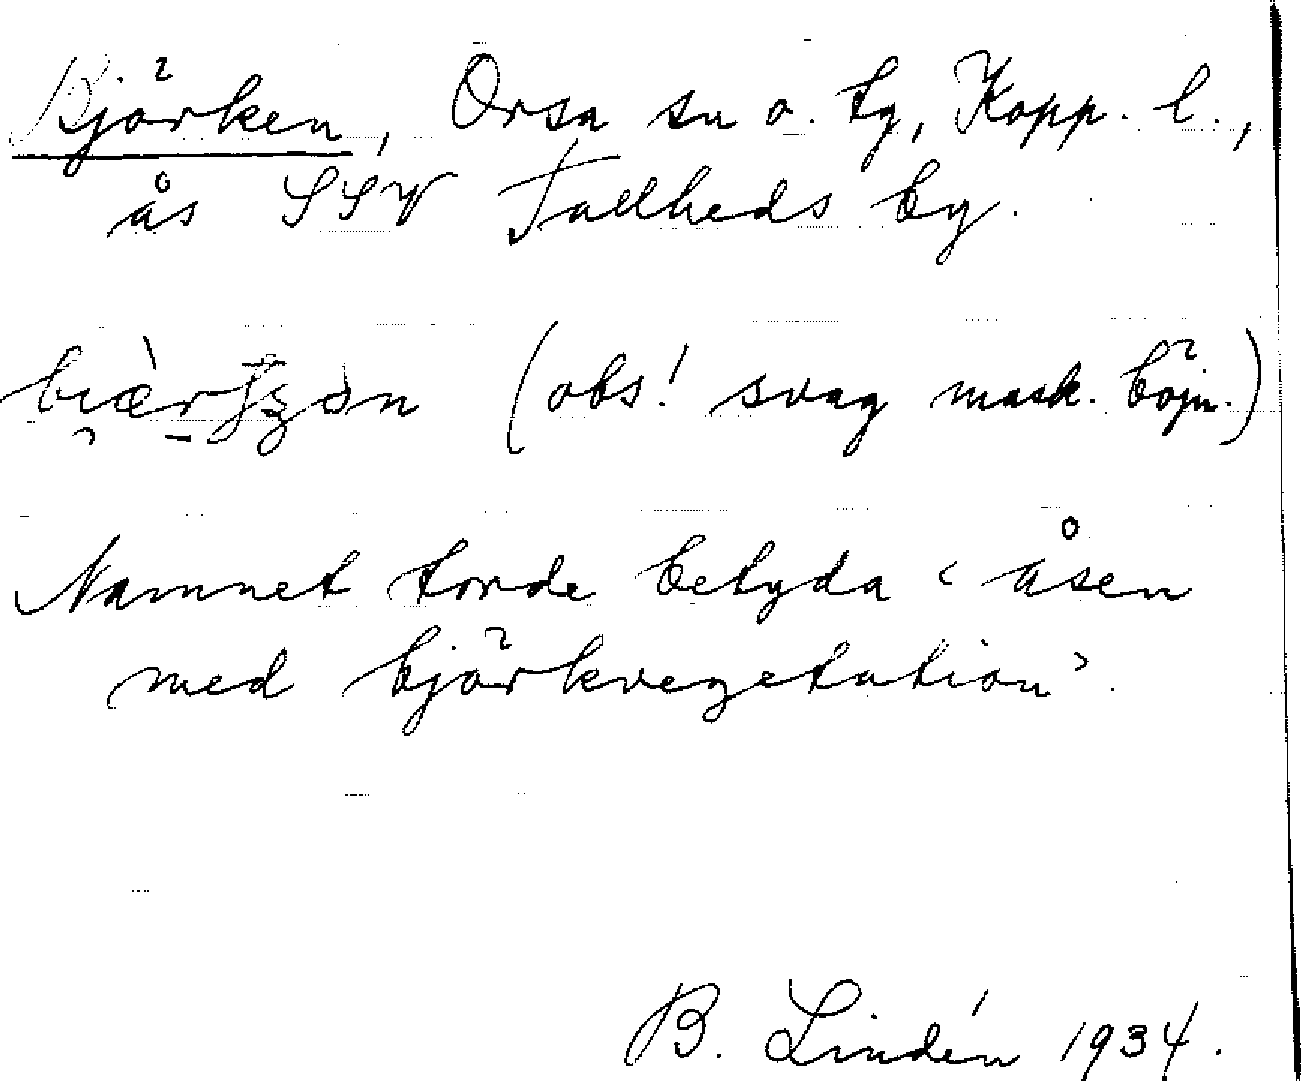 Björken, Orsa sn o. tg, Kopp. l.,
ås SSV Tallheds by.
(obs! svag mask. böjn.)
Namnet torde betyda ‘åsen
med björkvegetation’.
B. Lindén 1934.